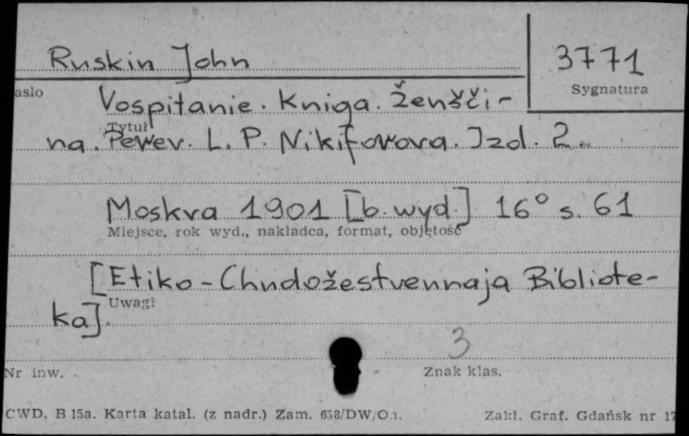 Ruskin John
3771
asło
Sygnatura
Vospitanie. Kniga. Ženšči-
Tytuł
na. Perev. L. P. Nikiforova. Izd. 2.
Moskva 1901 [b. wyd.] 16° s. 61
Miejsce, rok wyd., nakładca, format, objętość
[Etiko-Chudožestvennaja Bibliote-
Uwagi
ka].
3
Nr inw.
Znak klas.
CWD, B 15a. Karta katal. (z nadr.) Zam. 658/DW/O.1.
Zakł. Graf. Gdańsk nr 17